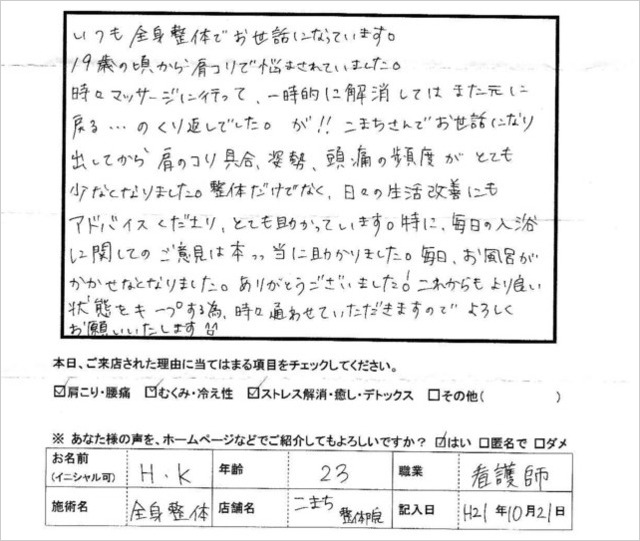 いつも全身整体でお世話になっています。
19歳の頃から肩コリで悩まされていました。
時々マッサージに行って、一時的に解消してはまた元に
戻る…のくり返しでした。が!!こまちさんでお世話になり
出してから肩のコリ具合、姿勢、頭痛の頻度がとても
少なくなりました。整体だけでなく、日々の生活改善にも
アドバイスくださり、とても助かっています。特に、毎日の入浴
に関してのご意見は本っ当に助かりました。毎日、お風呂が
かかせなくなりました。ありがとうございました!これからもより良い
状態をキープする為、時々通わせていただきますのでよろしく
お願いいたします
本日、ご来店された理由に当てはまる項目をチェックしてください。
☑肩こり・腰痛 ☑むくみ・冷え性 ☑ストレス解消・癒し・デトックス □その他( )
※ あなた様の声を、ホームページなどでご紹介してもよろしいですか? ☑はい □匿名で □ダメ
お名前 (イニシャル可) H.K 年齢 23 職業 看護師
施術名 全身整体 店舗名 こまち整体院 記入日 H21年10月21日